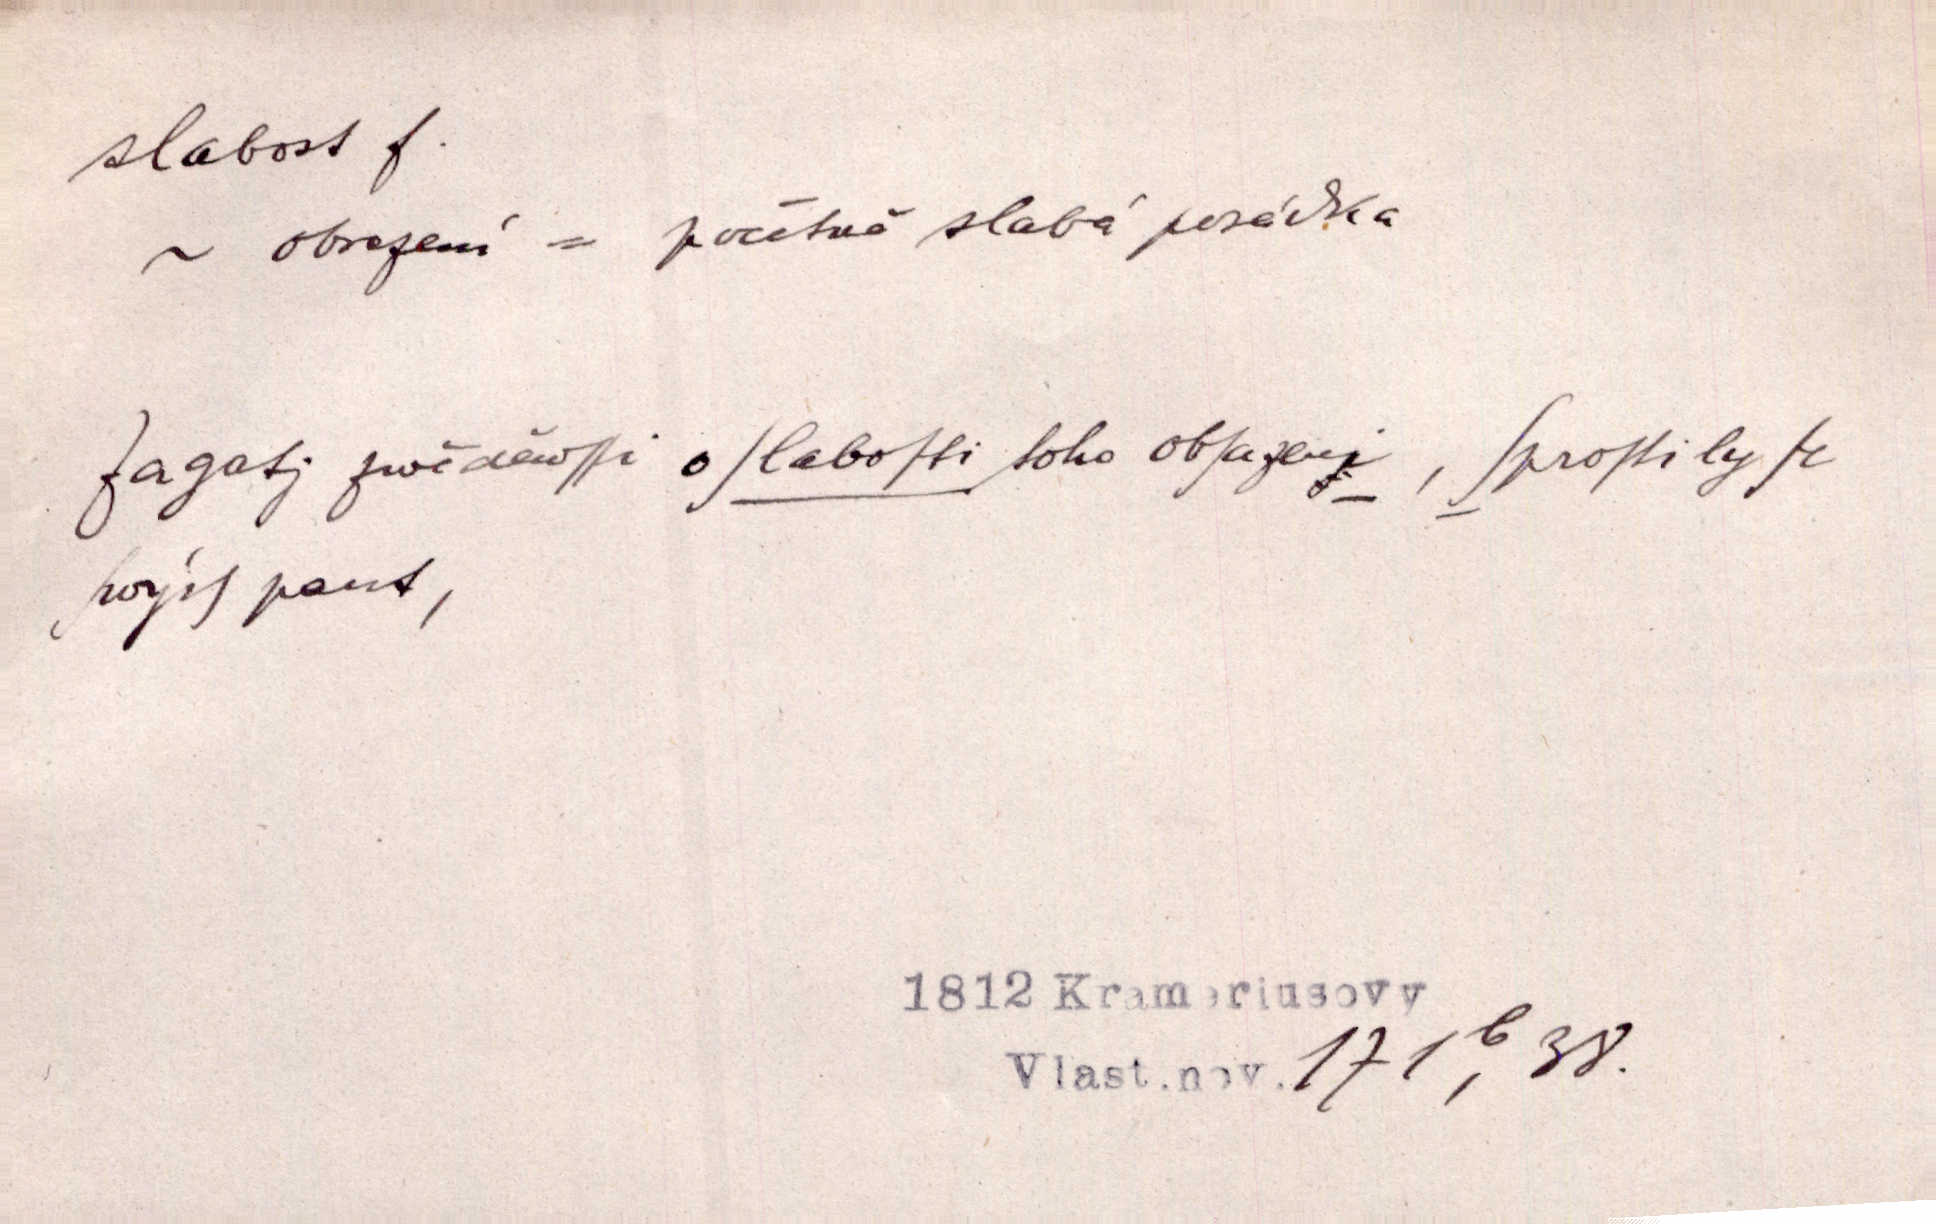 slabost f.
~ obsazení = početně slabá posádka
zagatj zwěděwſſi o ſlaboſti toho obſazenj, ſproſtily ſe
ſwých paut,
1812 Krameriusovy
Vlast.nov. 171,b 38.